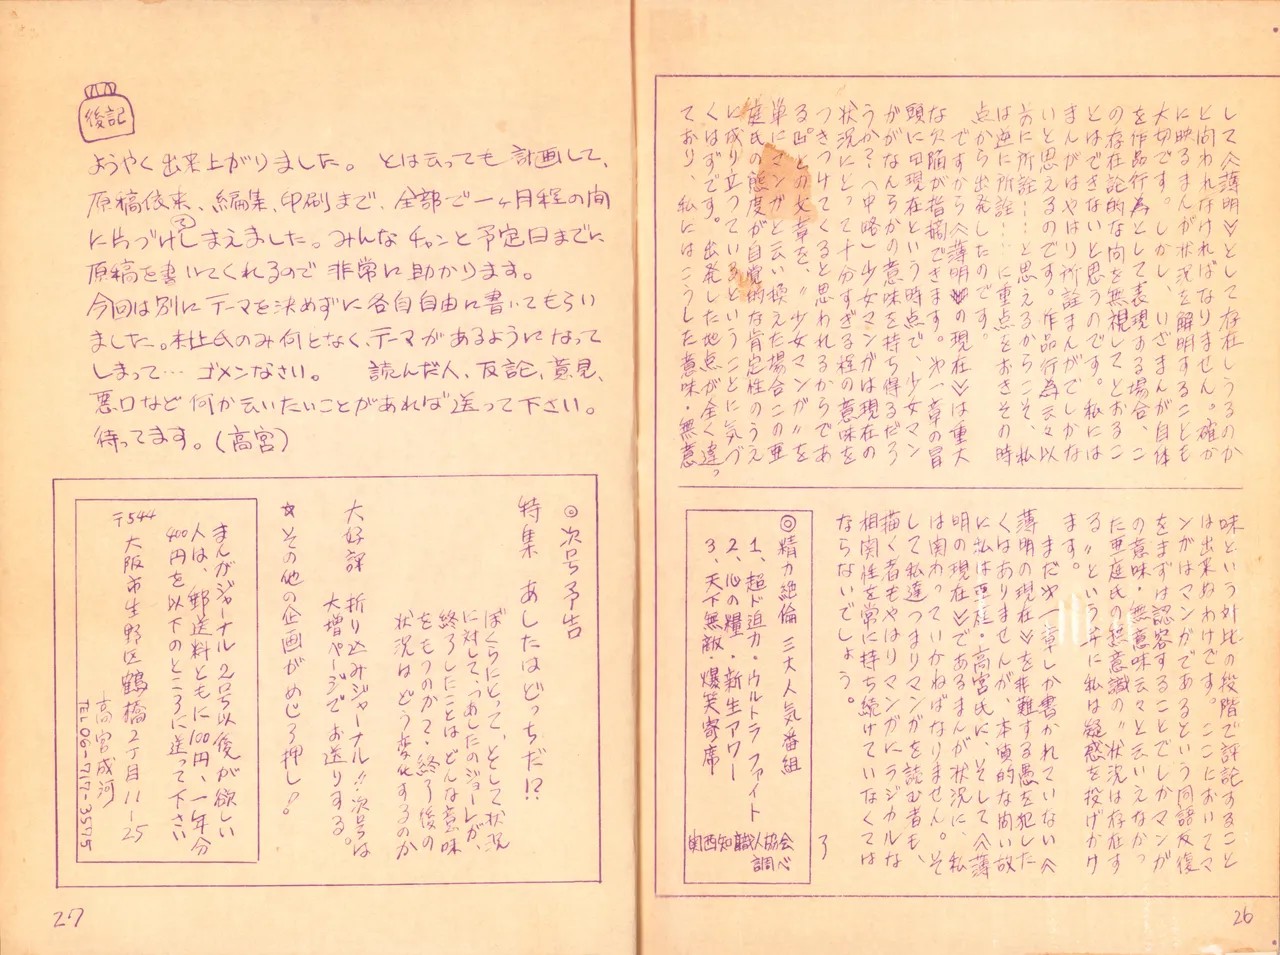 して〈薄明〉として存在しうるのか
と問われなければなりません。確か
に映るまんが状況を解明することも
大切です。しかし、いざまんが自体
を作品行為として表現する場合、こ
の存在論的な問を無視してとおるこ
とはできないと思うのです。私には
まんがはやはり所詮まんがでしかな
いと思えるのです。作品行為云々以
前に所詮……と思えるからこそ、私
は逆に所詮……に重点をおきその時
点から出発したのです。
ですから〈薄明の現在〉は重大
な欠陥が指摘できます。第一章の冒
頭に「現在という時点で、少女マン
ががなんらかの意味を持ち得るだろ
うか？（中略）少女マンガは現在の
状況にとって十分すぎる程の意味を
つきつけてくると思われるからであ
る」との文章を、〝少女マンガ〟を
単にマンガと云い換えた場合この亜
庭氏の態度が自覚的な肯定性のうえ
に成り立っているということに気づ
くはずです。出発した地点が全く違っ
ており、私にはこうした意味・無意
味という対比の段階で評論すること
は出来ぬわけです。ここにおいてマ
ンガはマンガであるという同語反復
をまずは認容することでしかマンガ
の意味・無意味云々と云いえなかっ
た亜庭氏の超意識の〝状況は存在す
る〟という弁に私は疑惑を投げかけ
ます。
まだ第一章しか書かれていない〈
薄明の現在〉を非難する愚を犯した
くはありませんが、本質的な問い故
に私は亜庭・高宮氏に、そして〈薄
明の現在〉であるまんが状況に、私
は関わっていかねばなりません。そ
して私達つまりマンガを読む者も、
描く者もやはりマンガにラジカルな
相関性を常に持ち続けていなくては
ならないでしょう。
了
◎精力絶倫 三大人気番組
1、超ド迫力・ウルトラファイト
2、心の糧・新生アワー
3、天下無敵・爆笑寄席
関西知識人協会
調べ
26
後記
ようやく出来上がりました。 とは云っても計画して、
原稿依来、編集、印刷まで、全部で一ヶ月程の間
に片づけてしまえました。みんなチャンと予定日までに
原稿を書いてくれるので非常に助かります。
今回は別にテーマを決めずに各自自由に書いてもらい
ました。村上氏のみ何となく、テーマがあるようになって
しまって… ゴメンなさい。 読んだ人、反論、意見、
悪口など何か云いたいことがあれば送って下さい。
待ってます。（高宮）
◎次号予告
特集 あしたはどっちだ!?
ぼくらにとって、そして状況
に対して、〝あしたのジョー〟が、
終了したことはどんな意味
をもつのか？・終了後の
状況はどう変化するのか
大好評 折り込みジャーナル!!次号は
大増ページでお送りする。
☆その他の企画がめじろ押し！
まんがジャーナル2号以後が欲しい
人は、郵送料ともに100円、一年分
400円を以下のところに送って下さい
〒544
大阪市生野区鶴橋2丁目11-25
高宮成河
TEL 06-717-3575
27